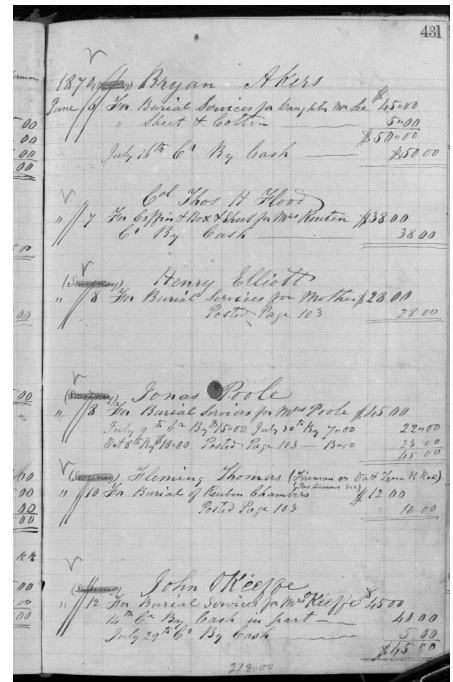 431
1870, Bryan Akers
June 6 For Burial Services for Daughter $45.00
" Sheet & Cotton 5.00
$50.00
July 16th Cr By Cash $50.00
Col Thos H Flood
" 7 For Coffin & Box & for Mrs $38 00
Cr By Cash 38 00
Henry Elliott
" 8 For Burial Services for Mother $28 00
Posted Page 103 28.00
Jonas Poole
" 8 For Burial Services for Mrs Poole $45 00
July 9th Cr By $15.00 July 30th By 7.00 22.00
Oct 8th By $10.00 Posted Page 103 - 13.00 23 00
45 00
Fleming Thomas (Fireman on Va & Tenn R Rd)
" 10 For Burial of Reuben Chambers $12 00
Posted Page 103 12 00
John OKeeffe
" 12 For Burial Services for Mrs Keeffe $45 00
14th Cr By Cash in part 40 00
July 29th Cr By Cash 5 00
$45 00
218.00